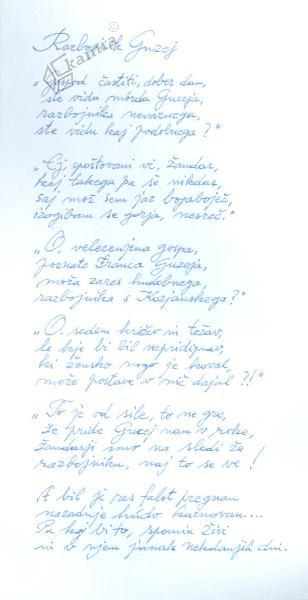 Razbojnik Guzej
kamra
„Gospod častiti, dober dan,
ste vidu morda Guzeja,
razbojnika nevarnega,
ste vidu kaj podobnega?"
„Ej, spoštovani vi, žandar,
kaj takega pa še nikdar,
saj mož sem jaz bogaboječ,
izogibam se gorja, nesreč."
„O, velecenjena gospa,
poznate Franca Guzeja,
moža zares hudobnega,
razbojnika s Kozjanskega?"
„O, sedem križev in težav,
le kje bi bil nepridiprav,
ki žensko nogo je
može postave v nič dajal?!"
„To je od sile, to ne gre,
že pride Guzej nam v roke,
žandarji smo na sledi že
razbojniku, naj to se ve!
A bil je res falot pregnan
nazadnje hudo kaznovan...
Pa kaj bi to, spomin živi
in v njem junak nekdanjih dni.